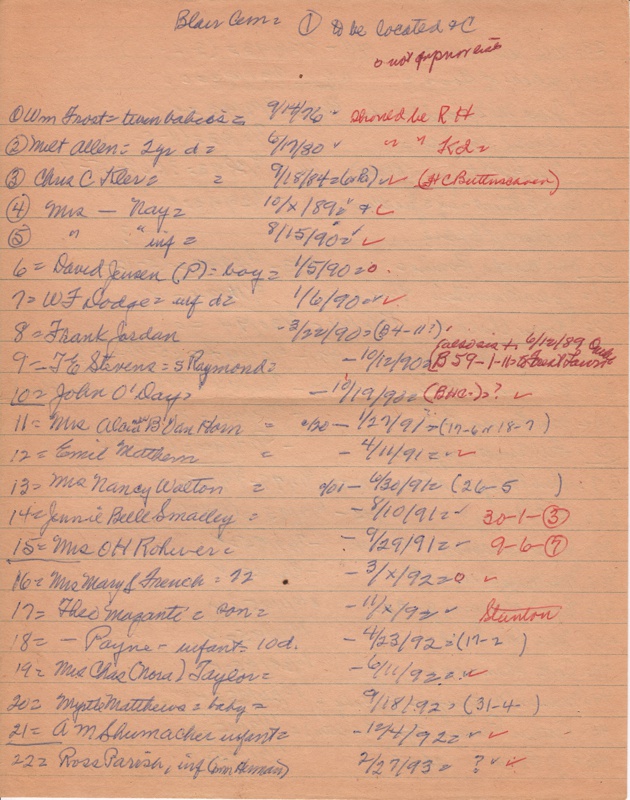 Blair Cem = ① to be located & C
o not
① Wm Frost = twin babies = 9/14/76 ✓ should be R H
② Milt Allen = 2yr d = 6/17/80 ✓ " " Kd =
③ Chris C = = 9/18/84 = ✓ ✓ (HC Buttenschoen)
④ Mrs — Nay = 10/x/89 = & ✓
⑤ " " inf = 8/15/90 = ✓ ✓
6 = David Jensen (P) = boy = 1/5/90 = o.
7 = W F Dodge = inf d = 1/6/90 = ✓ ✓
8 = Frank Jordan - 3/22/90 = (B4-11?)
9 = T E Stevens = s Raymond = - 10/12/90 = B 59-1-11 = 6/12/89
10 = John O'Day = - 10/19/90 = ? ✓
11 = Mrs B Van Horn = - 1/27/91 = (17-6 or 18-7)
12 = Emil Matthern = - 4/11/91 = ✓ ✓
13 = Mrs Nancy Walton = - 6/30/91 = (26-5 )
14 = Jennie Belle Smalley = - 8/10/91 = ✓ 30-1-③
15 = Mrs O H Rohwer = - 9/29/91 = ✓ 9-6-⑦
16 = Mrs Mary S French = 72 - 3/x/92 = o ✓
17 = Theo = son = - 11/x/92 ✓ Stanton
18 = - Payne - infant = 10d. - 4/23/92 = (17-2 )
19 = Mrs Chas (Nora) Taylor = - 6/11/92 = ✓
20 = Myrtle Matthews = baby = 9/18/92 = (31-4- )
21 = A M Shumacher infant = - 12/4/92 = ✓ ✓
22 = Ross Parish, inf 2/27/93 = ? ✓ ✓